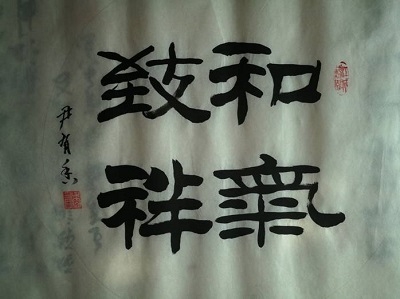 和氣
致祥
尹有玉